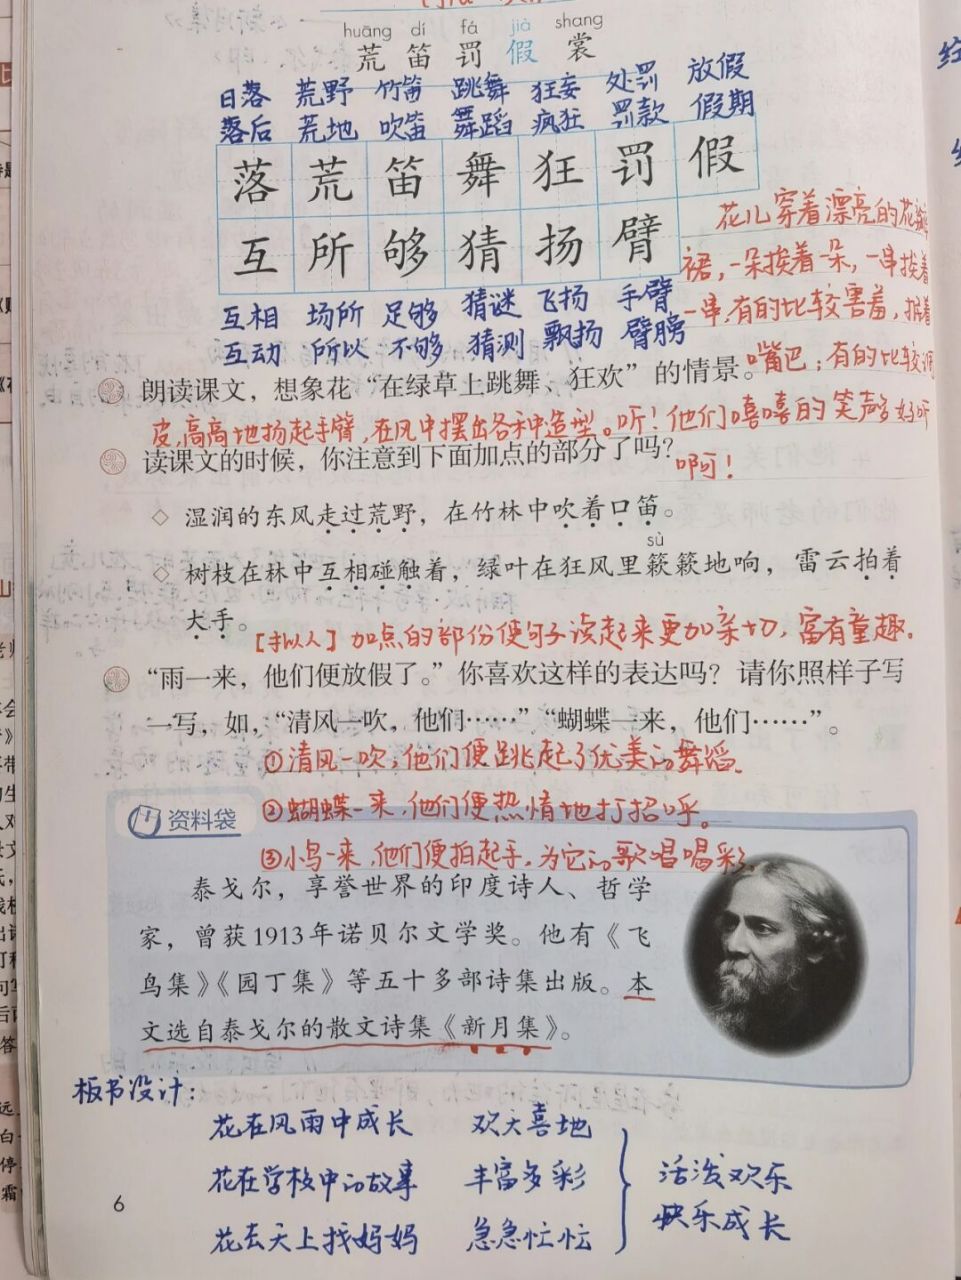 huāng dí fá jià shang
荒 笛 罚 假 裳
日落 荒野 竹笛 跳舞 狂妄 处罚 放假
落后 荒地 吹笛 舞蹈 疯狂 罚款 假期
落 荒 笛 舞 狂 罚 假
互 所 够 猜 扬 臂
互相 场所 足够 猜谜 飞扬 手臂
互动 所以 不够 猜测 飘扬 臂膀
花儿穿着漂亮的花瓣
裙，一朵挨着一朵，一串挨着
一串，有的比较害羞，抿着
嘴巴；有的比较调
朗读课文，想象花“在绿草上跳舞、狂欢”的情景。
皮，高高地扬起手臂，在风中摆出各种造型。听！他们嘻嘻的笑声多好听
啊！
读课文的时候，你注意到下面加点的部分了吗？
◇ 湿润的东风走过荒野，在竹林中吹着口笛。
sù
◇ 树枝在林中互相碰触着，绿叶在狂风里簌簌地响，雷云拍着
大手。
［拟人］加点的部份使句子读起来更加亲切，富有童趣。
“雨一来，他们便放假了。”你喜欢这样的表达吗？请你照样子写
一写，如，“清风一吹，他们……”“蝴蝶一来，他们……”。
①清风一吹，他们便跳起了优美的舞蹈。
②蝴蝶一来，他们便热情地打招呼。
③小鸟一来，他们便拍起手，为它的歌唱喝彩。
资料袋
泰戈尔，享誉世界的印度诗人、哲学
家，曾获1913年诺贝尔文学奖。他有《飞
鸟集》《园丁集》等五十多部诗集出版。本
文选自泰戈尔的散文诗集《新月集》。
板书设计：
花在风雨中成长 欢天喜地
花在学校中的故事 丰富多彩
花去天上找妈妈 急急忙忙
活泼欢乐
快乐成长
6